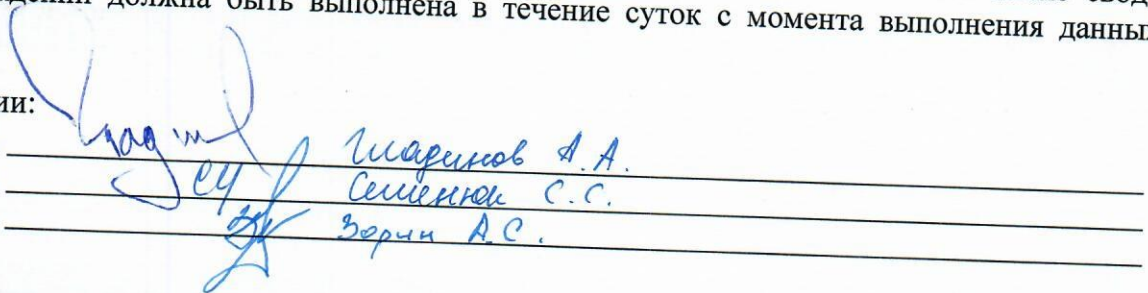 должна быть выполнена в течение суток с момента выполнения
ии:
А.А.
Семенюк С.С.
Зорин А.С.